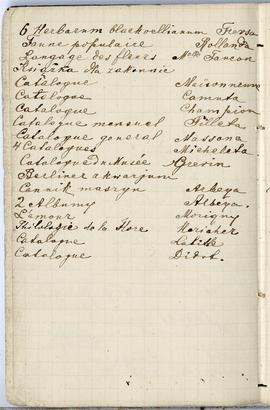 6 Herbarum blackvellianum Trevsa
Faune populaire Rollanda
Langage des fleurs Melle Faucon
Książka dla zakonnic
Catalogue Maisonneuve
Catalogue
Catalogue Champion
Catalogue mensuel
Catalogue general Massona
4 Catalogues Micheleta
Catalogue du Musée Grevin
Berliner akwarjum
Cennik maszyn Arbeya
2 Albumy Arbeya.
L'amour Morigny
de la Flore
Catalogue
Catalogue Didot.